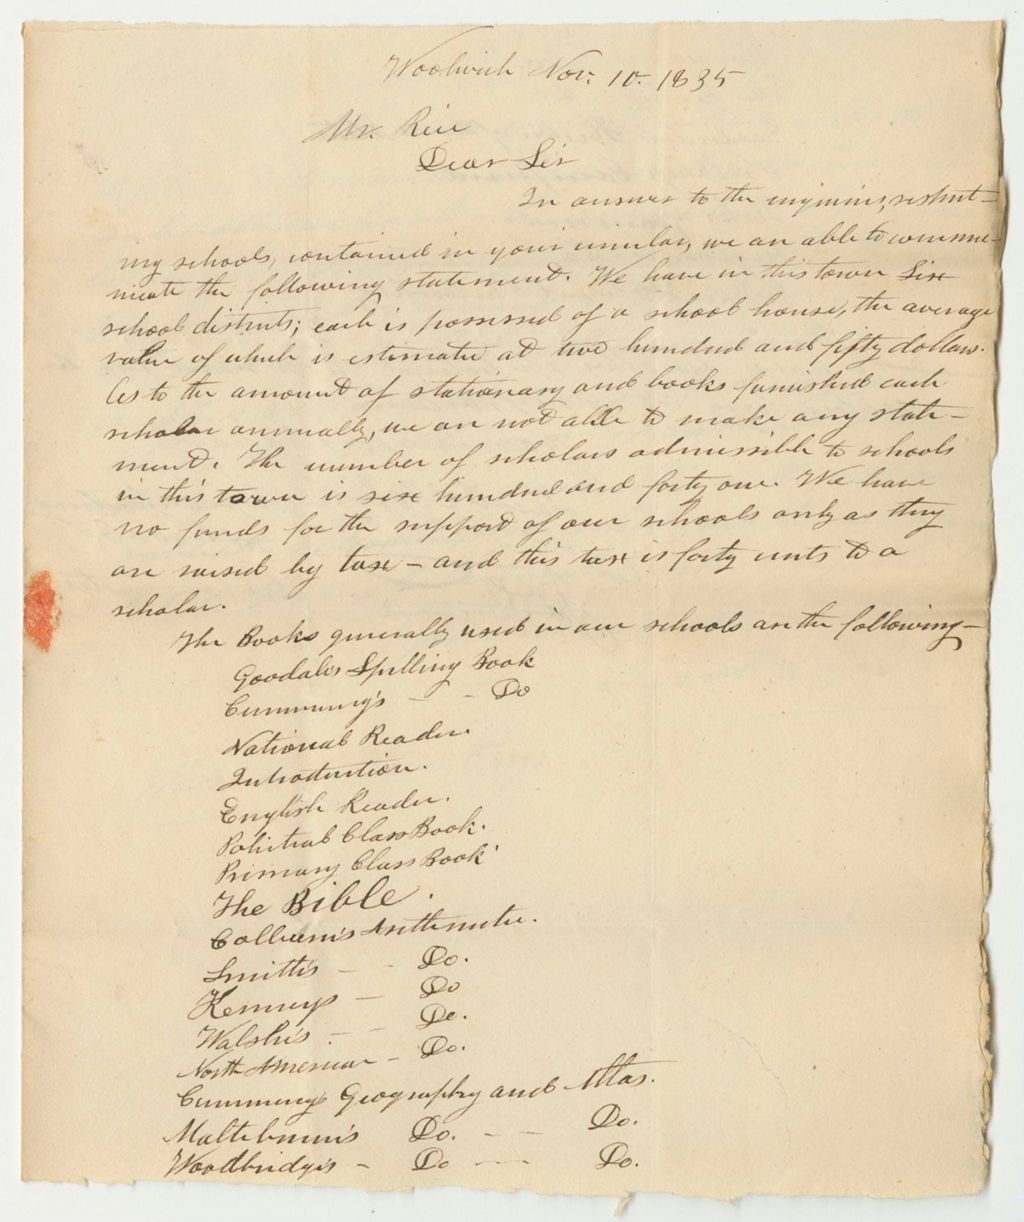 Woolwich Nov. 10. 1835
Mr. Rice
Dear Sir
In answer to the inquiries, respect-
ing schools, contained in your circular, we are able to commu-
nicate the following statement. We have in this town Six
school districts; each is possessed of a school house, the average
value of which is estimated at two hundred and fifty dollars.
As to the amount of stationary and books furnished each
scholar annually, we are not able to make any state-
ment. The number of scholars admissible to schools
in this town is six hundred and forty one. We have
no funds for the support of our schools only as they
are raised by tax - and this tax is forty cents to a
scholar.
The Books generally used in our schools are the following-
Goodale's Spelling Book
Cummung's - - Do
National Reader.
Introduction.
English Reader.
Political Class Book.
Primary Class Book.
The Bible.
Colburn's Arithmetic.
Smith's - - Do.
Kenney's - Do
Walsh's - - Do.
North American - Do.
Cummung's Geography and Atlas.
Maltebrun's Do. - - Do.
Woodbridge's - Do - - Do.